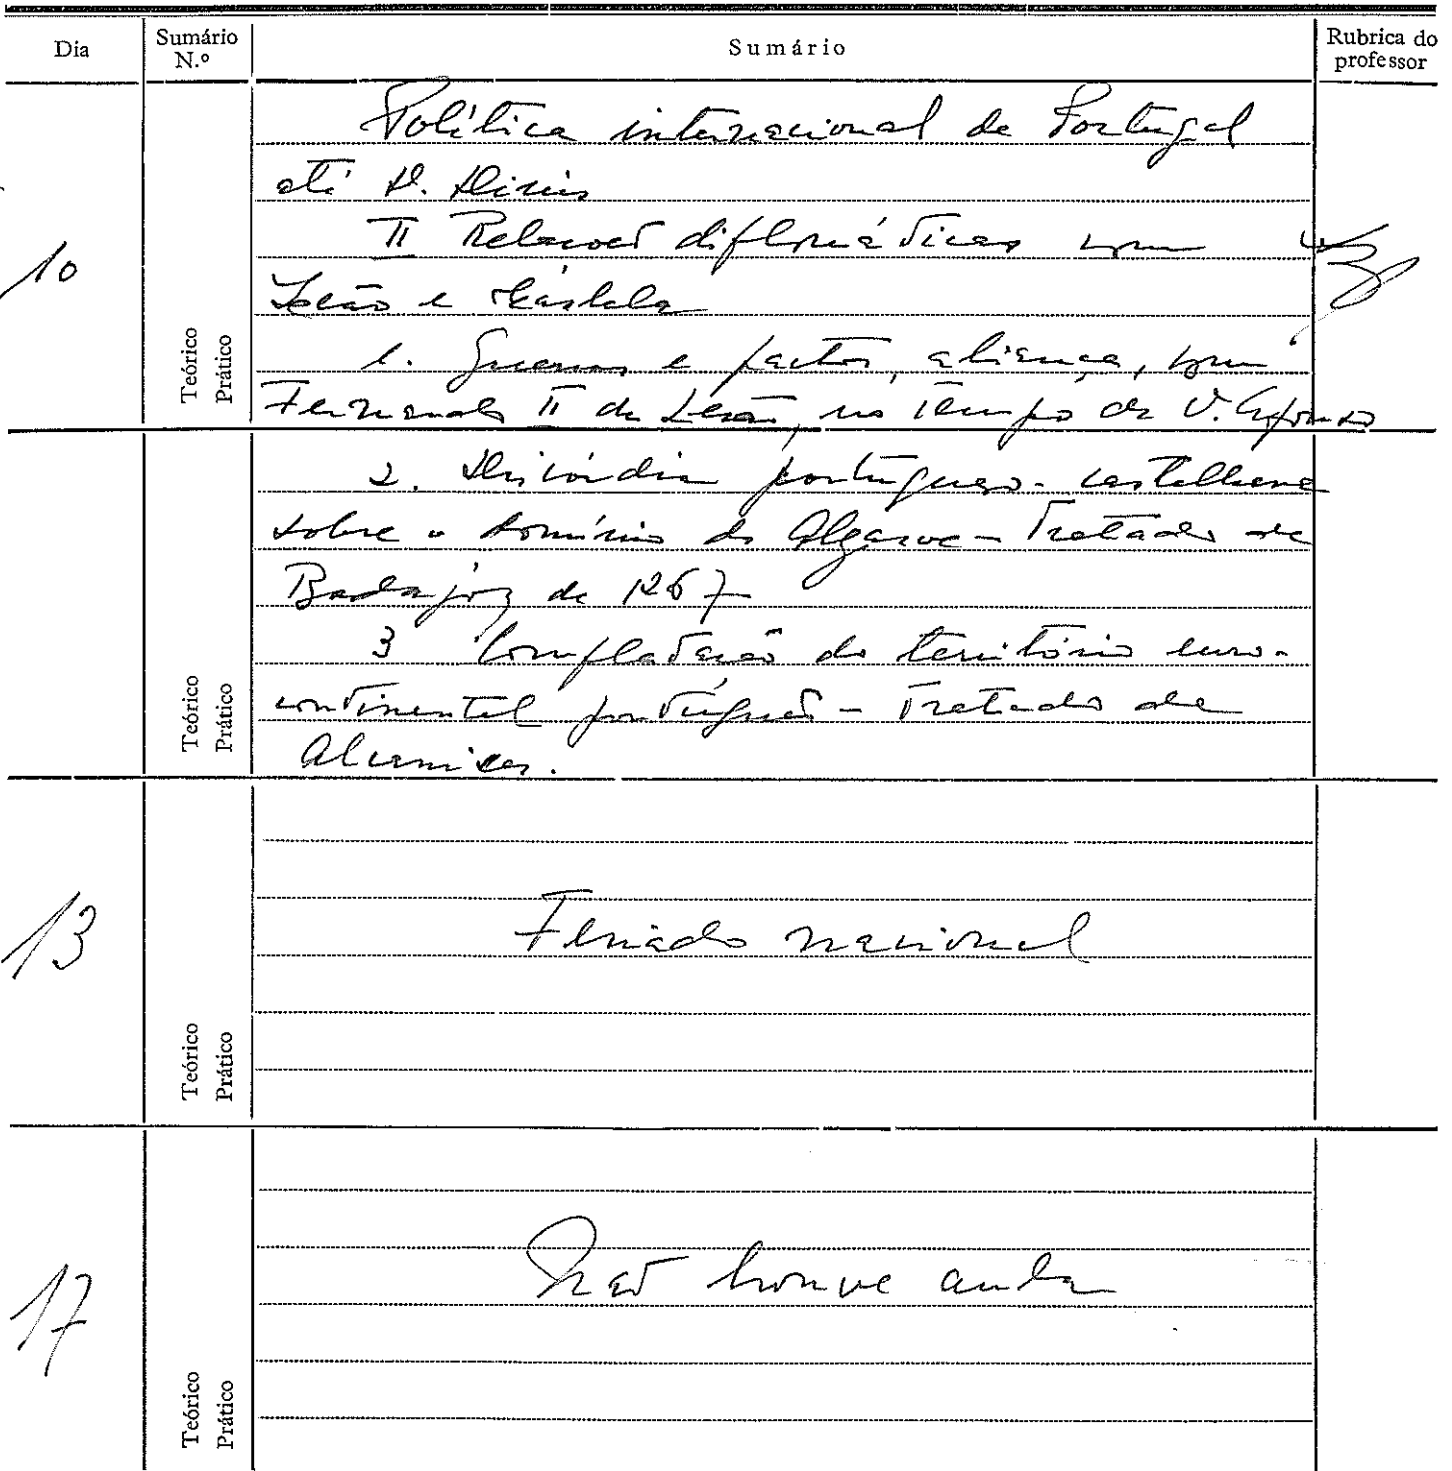 Dia
Sumário N.º
Sumário
Rubrica do professor
Política internacional de Portugal
até D. Dinis
10
II Relações diplomáticas com
Leão e Castela
1. Guerras e pactos, aliança, com
Fernando II de Leão, no tempo de D. Afonso
Teórico
Prático
2. Discórdia português-castelhana
sobre o domínio do Algarve - Tratado de
Badajoz de 1267
3 Completação do território euro-
continental português - Tratado de
Alcanices.
Teórico
Prático
13
Feriado nacional
Teórico
Prático
17
Não houve aula
Teórico
Prático